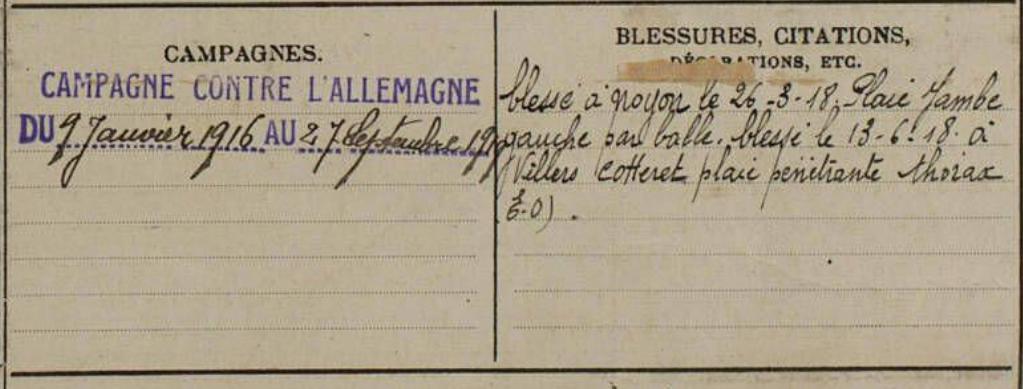 CAMPAGNES.
CAMPAGNE CONTRE L'ALLEMAGNE
DU 9 Janvier 1916 AU 27 Septembre
BLESSURES, CITATIONS,
DÉCORATIONS, ETC.
blessé à noyon le 26-3-18. Plaie Jambe
gauche par balle. blessé le 13-6-18. à
Villers cotteret plaie pénétrante thorax